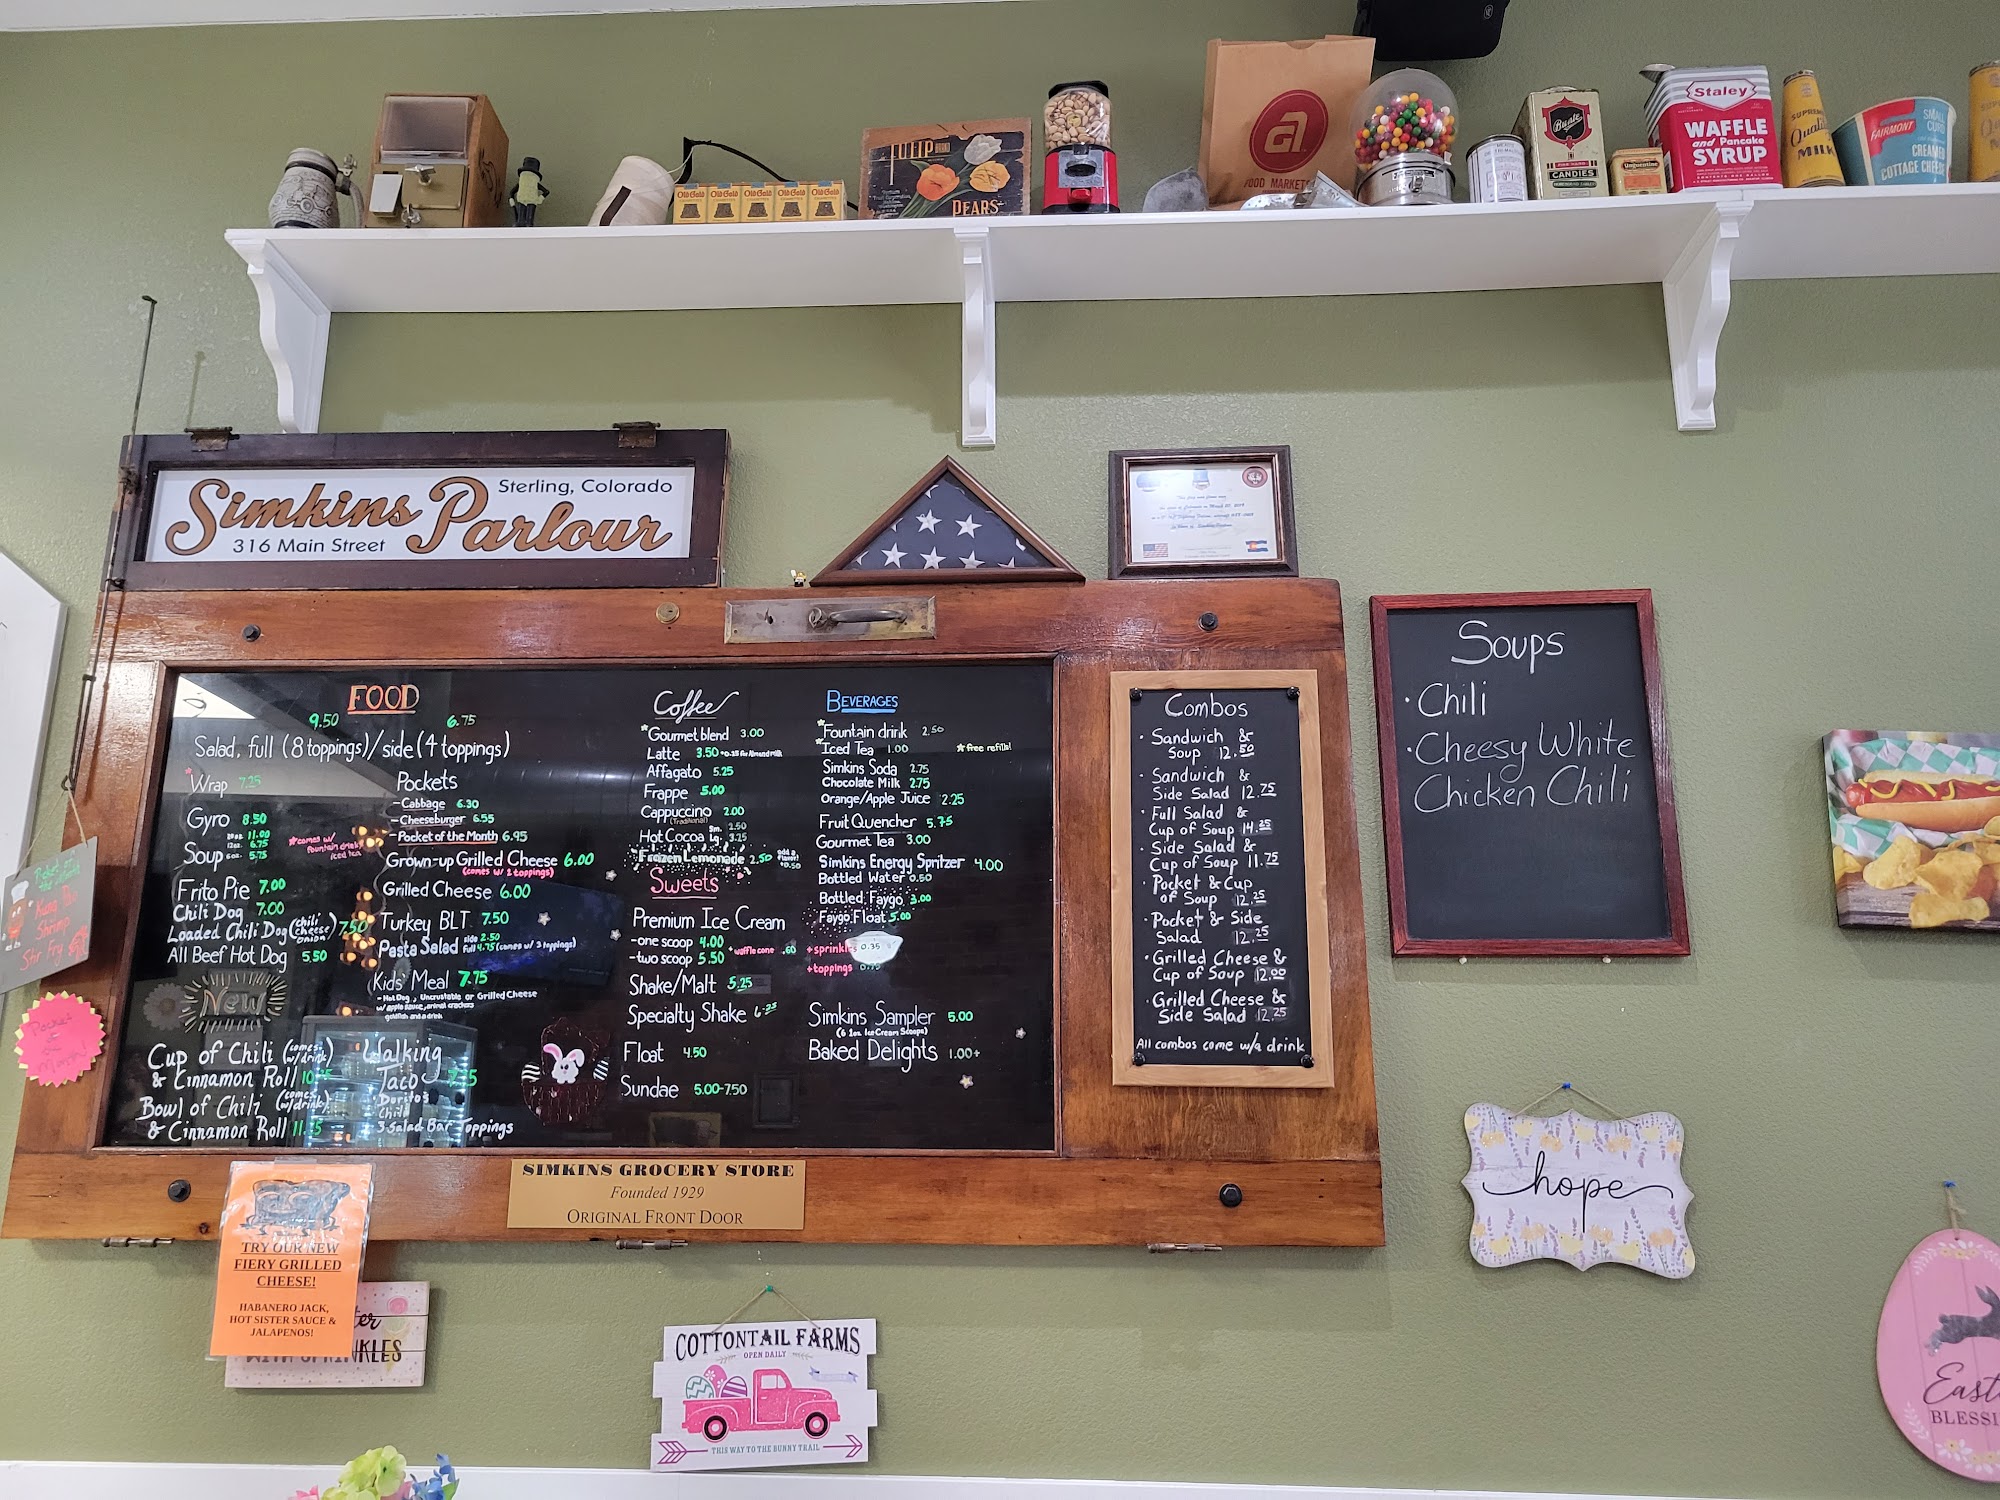 Old Gold
Old Gold
Old Gold
Old Gold
Old Gold
TULIP
PEARS
a
FOOD MARKETS
Bunte
CANDIES
Unguentine
Staley
WAFFLE
and Pancake
SYRUP
Quality
MILK
FAIRMONT
SMALL
CURD
CREAMED
COTTAGE CHEESE
Simkins Parlour
Sterling, Colorado
316 Main Street
FOOD
9.50 6.75
Salad, full (8 toppings)/side (4 toppings)
*Wrap 7.25
Gyro 8.50
Soup
11.00
12oz. 6.75
6oz. 5.75
*comes w/
fountain drink/
iced tea
Frito Pie 7.00
Chili Dog 7.00
Loaded Chili Dog (chili cheese onion) 7.50
All Beef Hot Dog 5.50
New
Cup of Chili (comes w/drink)
& Cinnamon Roll
Bowl of Chili (comes w/drink)
& Cinnamon Roll
Pockets
-Cabbage 6.30
-Cheeseburger 6.55
-Pocket of the Month 6.95
Grown-up Grilled Cheese 6.00
(comes w/ 2 toppings)
Grilled Cheese 6.00
Turkey BLT 7.50
Pasta Salad side 2.50
full 4.75 (comes w/ 3 toppings)
Kids' Meal 7.75
-Hot Dog, Uncrustable or Grilled Cheese
w/ apple sauce, animal crackers
goldfish and a drink
Walking
Taco
-Doritos
-Chili
-3-Salad Bar Toppings
Coffee
*Gourmet blend 3.00
Latte 3.50 +0.25 for Almond milk
Affagato 5.25
Frappe 5.00
Cappuccino 2.00
(Traditional)
Hot Cocoa Sm. 2.50
Lg. 3.25
Frozen Lemonade 2.50 add a flavor! +0.50
Sweets
Premium Ice Cream
-one scoop 4.00
-two scoop 5.50
+waffle cone .60
+sprinkles 0.35
+toppings
Shake/Malt 5.25
Specialty Shake
Float 4.50
Sundae 5.00-7.50
BEVERAGES
*Fountain drink 2.50
*Iced Tea 1.00
*free refills!
Simkins Soda 2.75
Chocolate Milk 2.75
Orange/Apple Juice 2.25
Fruit Quencher 5.75
Gourmet Tea 3.00
Simkins Energy Spritzer 4.00
Bottled Water 0.50
Bottled Faygo 3.00
Faygo Float 5.00
Simkins Sampler 5.00
(6 2oz. Ice Cream Scoops)
Baked Delights 1.00+
Combos
· Sandwich &
Soup 12.50
· Sandwich &
Side Salad 12.75
· Full Salad &
Cup of Soup 14.25
· Side Salad &
Cup of Soup 11.75
· Pocket & Cup
of Soup 12.25
· Pocket & Side
Salad 12.25
· Grilled Cheese &
Cup of Soup 12.00
· Grilled Cheese &
Side Salad 12.25
All combos come w/a drink
Soups
· Chili
· Cheesy White
Chicken Chili
Pocket of
the Month
Kung Pao
Shrimp
Stir Fry
Pocket
of the
Month!
SIMKINS GROCERY STORE
Founded 1929
ORIGINAL FRONT DOOR
TRY OUR NEW
FIERY GRILLED
CHEESE!
HABANERO JACK,
HOT SISTER SAUCE &
JALAPENOS!
WITH SPRINKLES
COTTONTAIL FARMS
OPEN DAILY
THIS WAY TO THE BUNNY TRAIL
hope